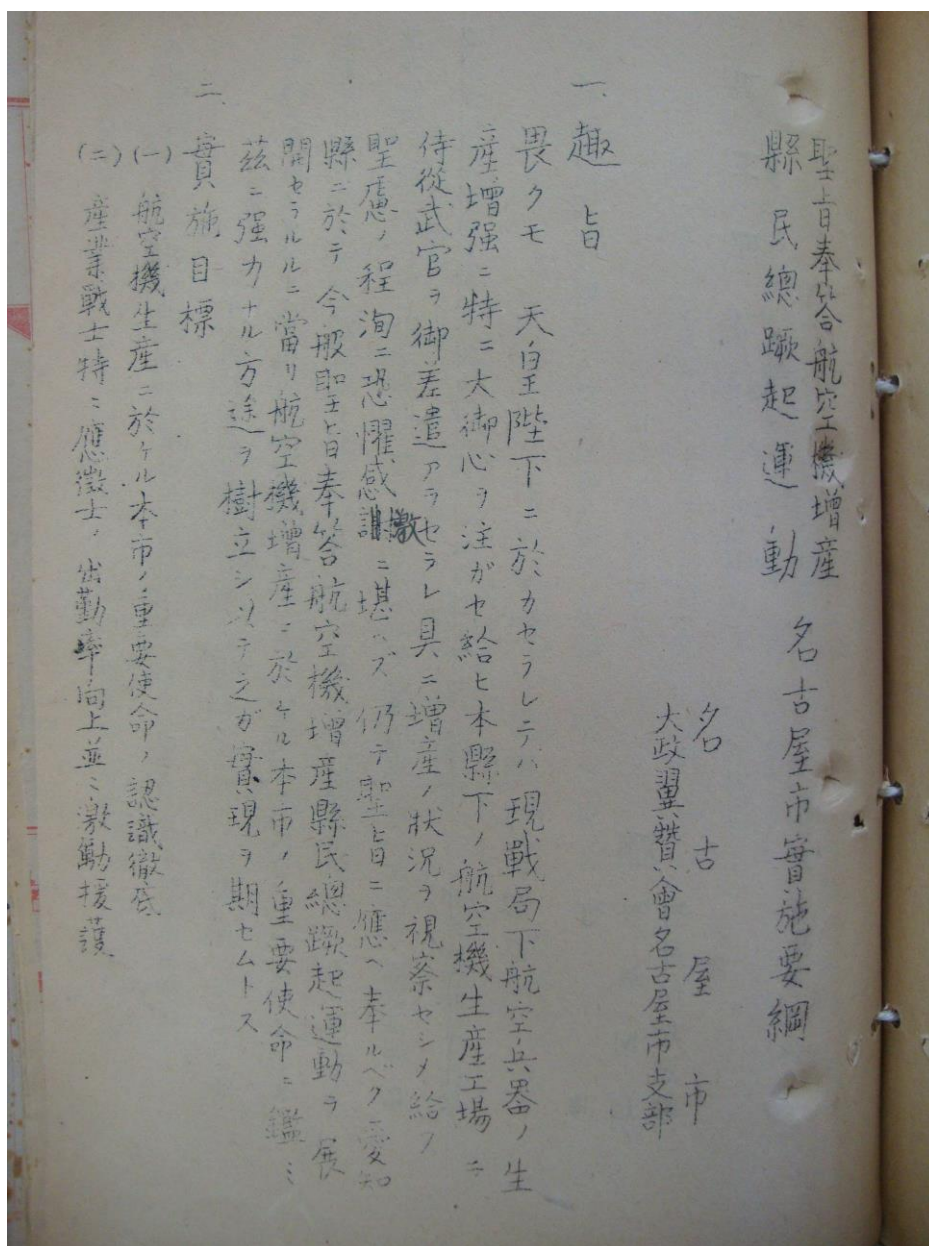 聖旨奉答航空機増産
縣民總蹶起運動 名古屋市實施要綱
名古屋市
大政翼贊會名古屋市支部
一、趣旨
畏クモ 天皇陛下ニ於カセラレテハ現戰局下航空兵器ノ生
産增强ニ特ニ大御心ヲ注ガセ給ヒ本縣下ノ航空機生産工場ニ
侍從武官ヲ御差遣アラセラレ具ニ増産ノ狀況ヲ視察セシメ給フ
聖慮ノ程洵ニ恐懼感激ニ堪ヘズ 仍テ聖旨ニ應ヘ奉ルベク愛知
縣ニ於テ今般聖旨奉答航空機增産縣民總蹶起運動ヲ展
開セラルルニ當リ航空機增産ニ於ケル本市ノ重要使命ニ鑑ミ
茲ニ强力ナル方途ヲ樹立シ以テ之ガ實現ヲ期セムトス
二、實施目標
(一) 航空機生産ニ於ケル本市ノ重要使命ノ認識徹底
(二) 産業戰士特ニ應徴士ノ出勤率向上並ニ激勵援護